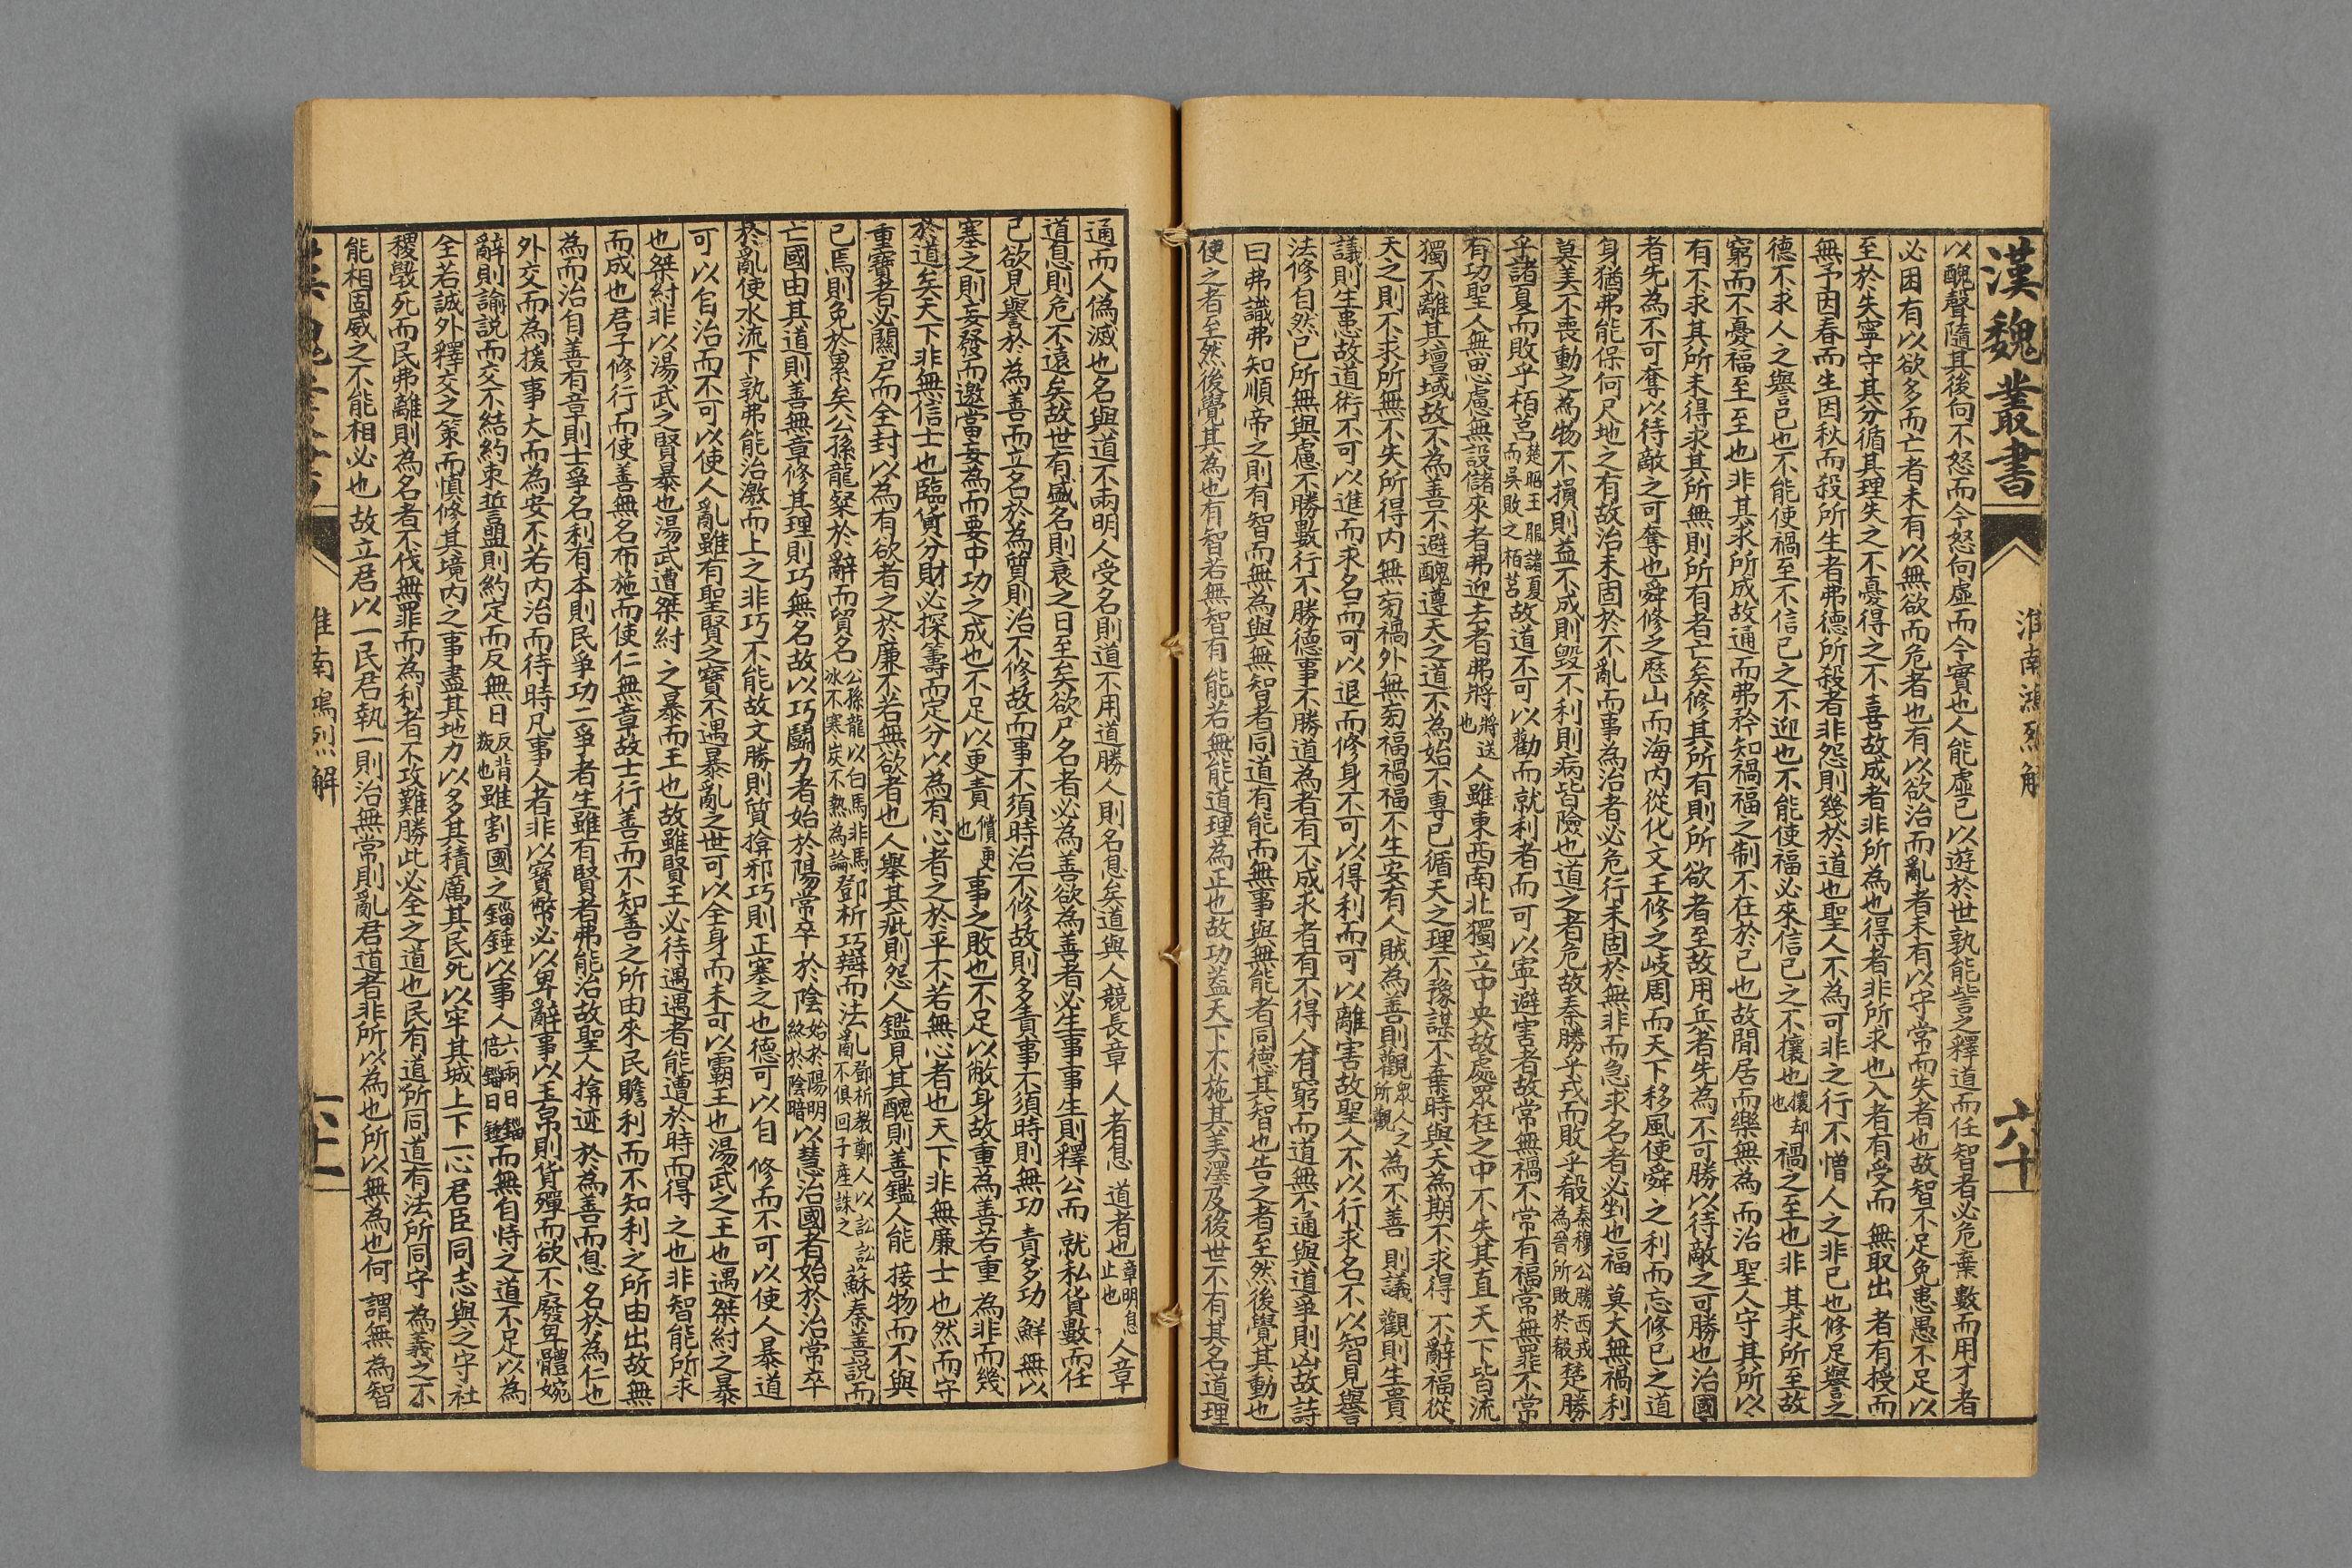 漢魏叢書 淮南鴻烈解 六十
以醜聲隨其後向不怒而今怒向虛而今實也人能虛己以遊於世孰能訾之釋道而任智者必危棄數而用才者
必困有以欲多而亡者未有以無欲而危者也有以欲治而亂者未有以守常而失者也故智不足免患愚不足以
至於失寧守其分循其理失之不憂得之不喜故成者非所為也得者非所求也入者有受而無取出者有授而
無予因春而生因秋而殺所生者弗德所殺者非怨則幾於道也聖人不為可非之行不憎人之非己也修足譽之
德不求人之譽己也不能使禍至不信己之不迎也不能使福必來信己之不攘也攘却也禍之至也非其求所至故
窮而不憂福至至也非其求所成故通而弗矜知禍福之制不在於己也故閒居而樂無為而治聖人守其所以
有不求其所未得求其所無則所有者亡矣修其所有則所欲者至故用兵者先為不可勝以待敵之可勝也治國
者先為不可奪以待敵之可奪也舜修之歷山而海內從化文王修之岐周而天下移風使舜之利而忘修己之道
身猶弗能保何尺地之有故治未固於不亂而事為治者必危行未固於無非而急求名者必剉也福莫大無禍利
莫美不喪動之為物不損則益不成則毀不利則病皆險也道之者危故秦勝乎戎而敗乎殽秦穆公勝西戎為晉所敗於殽楚勝
乎諸夏而敗乎栢莒楚昭王服諸夏而吳敗之栢莒故道不可以勸而就利者而可以寧避害者故常無禍不常有福常無罪不常
有功聖人無思慮無設儲來者弗迎去者弗將將送也人雖東西南北獨立中央故處眾枉之中不失其直天下皆流
獨不離其壇域故不為善不避醜遵天之道不為始不專己循天之理不豫謀不棄時與天為期不求得不辭福從
天之則不求所無不失所得內無㫄禍外無㫄福禍福不生安有人賊為善則觀眾人之所觀為不善則議觀則生貴
議則生患故道術不可以進而求名而可以退而修身不可以得利而可以離害故聖人不以行求名不以智見譽
法修自然己所無與慮不勝數行不勝德事不勝道為者有不成求者有不得人有窮而道無不通與道爭則凶故詩
曰弗識弗知順帝之則有智而無為與無智者同道有能而無事與無能者同德其智也告之者至然後覺其動也
使之者至然後覺其為也有智若無智有能若無能道理為正也故功蓋天下不施其美澤及後世不有其名道理
通而人偽滅也名與道不兩明人受名則道不用道勝人則名息矣道與人競長章人者息道者也章明息止也人章
道息則危不遠矣故世有盛名則衰之日至矣欲尸名者必為善欲為善者必生事事生則釋公而就私貨數而任
己欲見譽於為善而立名於為質則治不修故而事不須時治不修故則多責事不須時則無功責多功鮮無以
塞之則妄發而邀當妄為而要中功之成也不足以更責更償也事之敗也不足以敝身故重為善若重為非而幾
於道矣天下非無信士也臨貨分財必探籌而定分以為有心者之於平不若無心者也天下非無廉士也然而守
重寶者必關尸而全封以為有欲者之於廉不若無欲者也人舉其疵則怨人鑑見其醜則善鑑人能接物而不與
己焉則免於累矣公孫龍粲於辭而貿名公孫龍以白馬非馬冰不寒炭不熱為論鄧析巧辯而法亂鄧析教鄭人以訟訟不俱回子產誅之蘇秦善說而
亡國由其道則善無章修其理則巧無名故以巧鬭力者始於陽常卒於陰始於陽明終於陰暗以慧治國者始於治常卒
於亂使水流下孰弗能治激而上之非巧不能故文勝則質揜邪巧則正塞之也德可以自修而不可以使人暴道
可以自治而不可以使人亂雖有聖賢之寶不遇暴亂之世可以全身而未可以霸王也湯武之王也遇桀紂之暴
也桀紂非以湯武之賢暴也湯武遭桀紂之暴而王也故雖賢王必待遇遇者能遭於時而得之也非智能所求
而成也君子修行而使善無名布施而使仁無章故士行善而不知善之所由來民贍利而不知利之所由出故無
為而治自善有章則士爭名利有本則民爭功二爭者生雖有賢者弗能治故聖人揜迹於為善而息名於為仁也
外交而為援事大而為安不若內治而待時凡事人者非以寶幣必以卑辭事以玉帛則貨殫而欲不厭卑體婉
辭則諭說而交不結約束誓盟則約定而反無日反背叛也雖割國之錙錘以事人六兩曰錙倍錙曰錘而無自恃之道不足以為
全若誠外釋交之策而慎修其境內之事盡其地力以多其積厲其民死以牢其城上下一心君臣同志與之守社
稷斅死而民弗離則為名者不伐無罪而為利者不攻難勝此必全之道也民有道所同道有法所同守為義之不
能相固威之不能相必也故立君以一民君執一則治無常則亂君道者非所以為也所以無為也何謂無為智
淮南鴻烈解